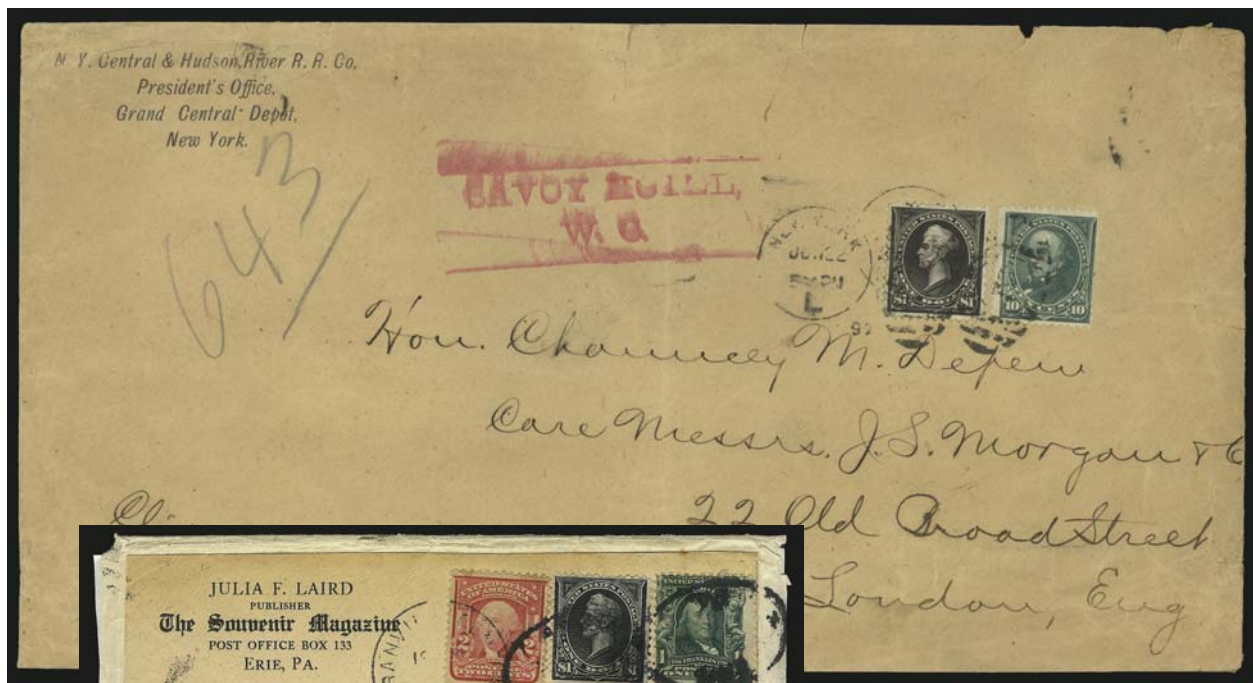 N. Y. Central & Hudson River R. R. Co.
President's Office,
Grand Central Depot,
New York.
643
SAVOY HOTEL,
W. C
NEW YORK
JUN 22
L
97
$1 $1
10 10
Hon. Chauncey M. Depew
Care Messrs. J. S. Morgan & C
22 Old Broad Street
London, Eng
JULIA F. LAIRD
PUBLISHER
The Souvenir Magazine
POST OFFICE BOX 133
ERIE, PA.
UNITED STATES
OF AMERICA
2 2
TWO CENTS
$1